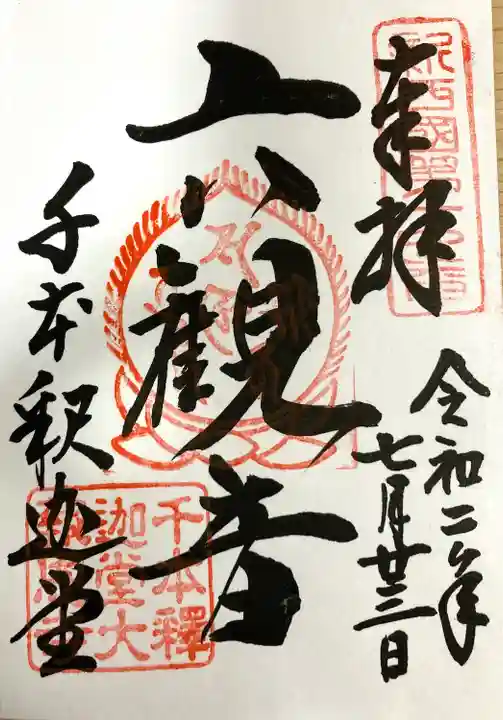 奉拝
令和二年
七月廿三日
六観音
千本釈迦堂
千本釋
迦堂大
報恩寺